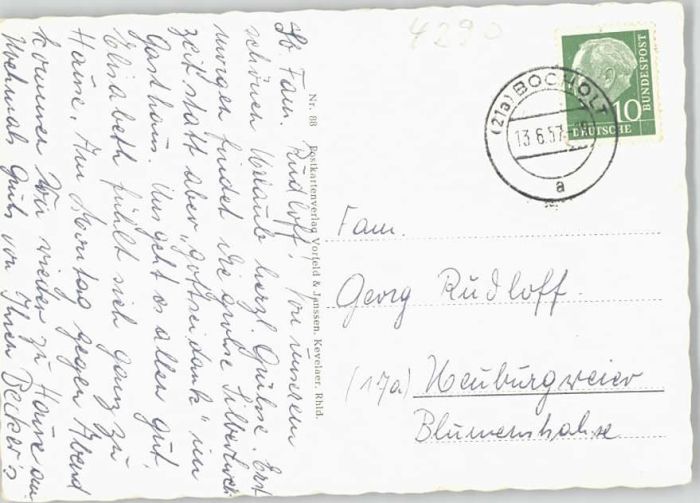 4290
Lb Fam. Rudloff! Von unserem
schönen Urlaub herzl. Grüße. Erst
morgen findet die große Silberhoch-
zeit statt aber „gottseidank" im
Gasthaus. Uns geht es allen gut.
Elisabeth fühlt sich ganz zu
Hause. Am Montag gegen Abend
kommen wir wieder zu Hause an
Nochmals Gruß von Ihren Becker's
Nr. 88 Postkartenverlag Vorfeld & Janssen, Kevelaer, Rhld.
(21a) BOCHOLT
13.6.57
a
10
DEUTSCHE
BUNDESPOST
Fam.
Georg Rudloff
(17a) Neuburgweier
Blumenstraße